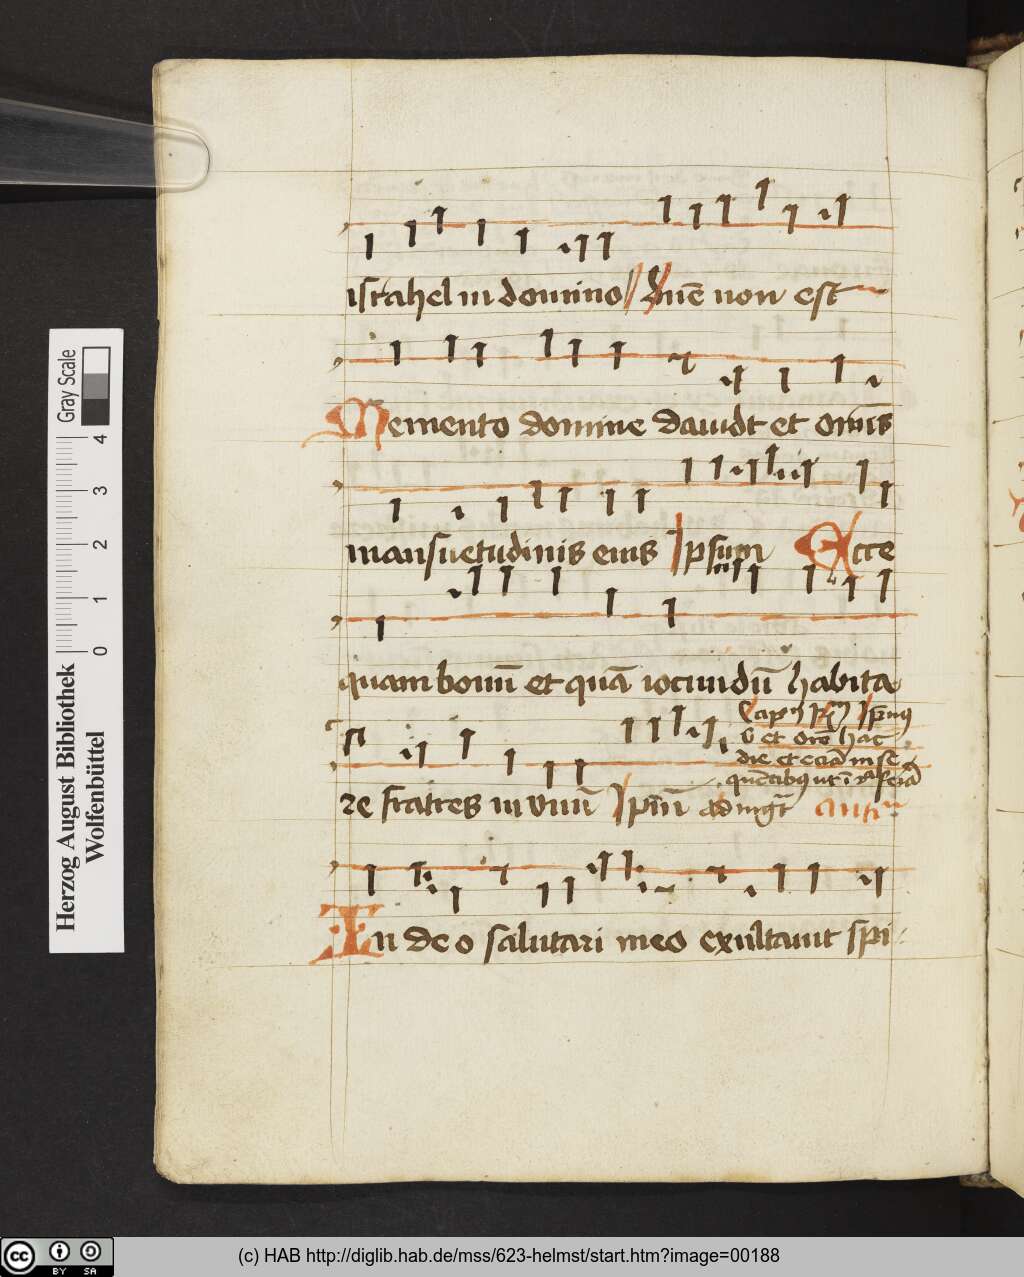 israhel in domino Dn̄e non est
Memento domine dauidt et om̄is
mansuetudinis eius Ipsum Ecce
quam bonū et quā iocundū habita
re fratres in vnū Ipm̄
ad mgt̄
v̄ et orō hac
die et eciā in se
In deo salutari meo exultauit spi
Herzog August Bibliothek
Wolfenbüttel
Gray Scale
0 1 2 3 4
cc BY SA
(c) HAB http://diglib.hab.de/mss/623-helmst/start.htm?image=00188